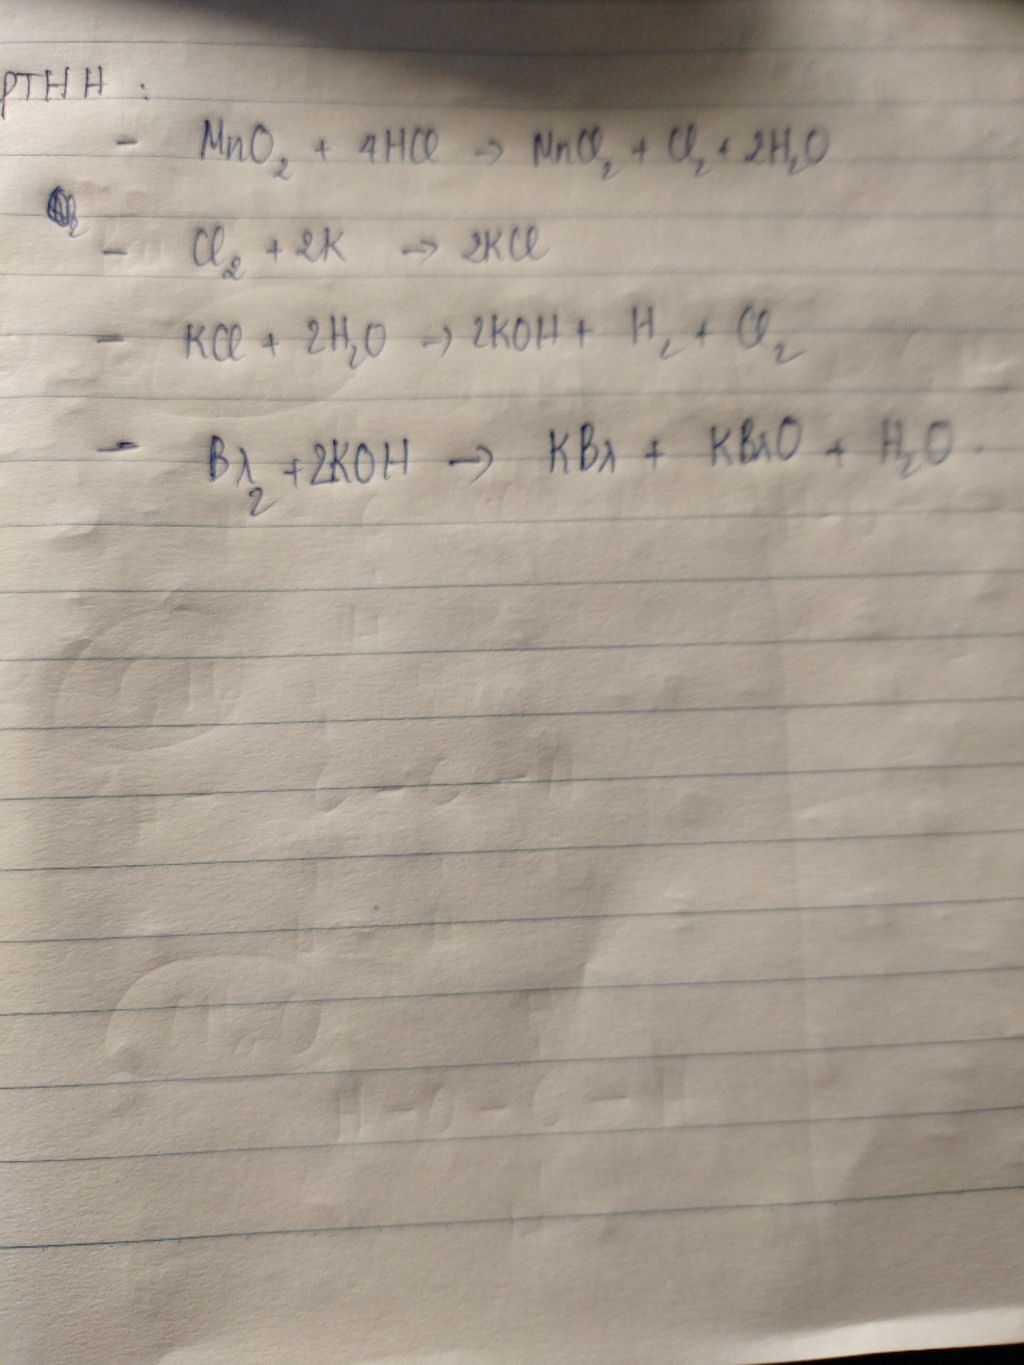 PTHH :
- MnO₂ + 4HCl → MnCl₂ + Cl₂ + 2H₂O
- Cl₂ + 2K → 2KCl
- KCl + 2H₂O → 2KOH + H₂ + Cl₂
- Br₂ + 2KOH → KBr + KBrO + H₂O